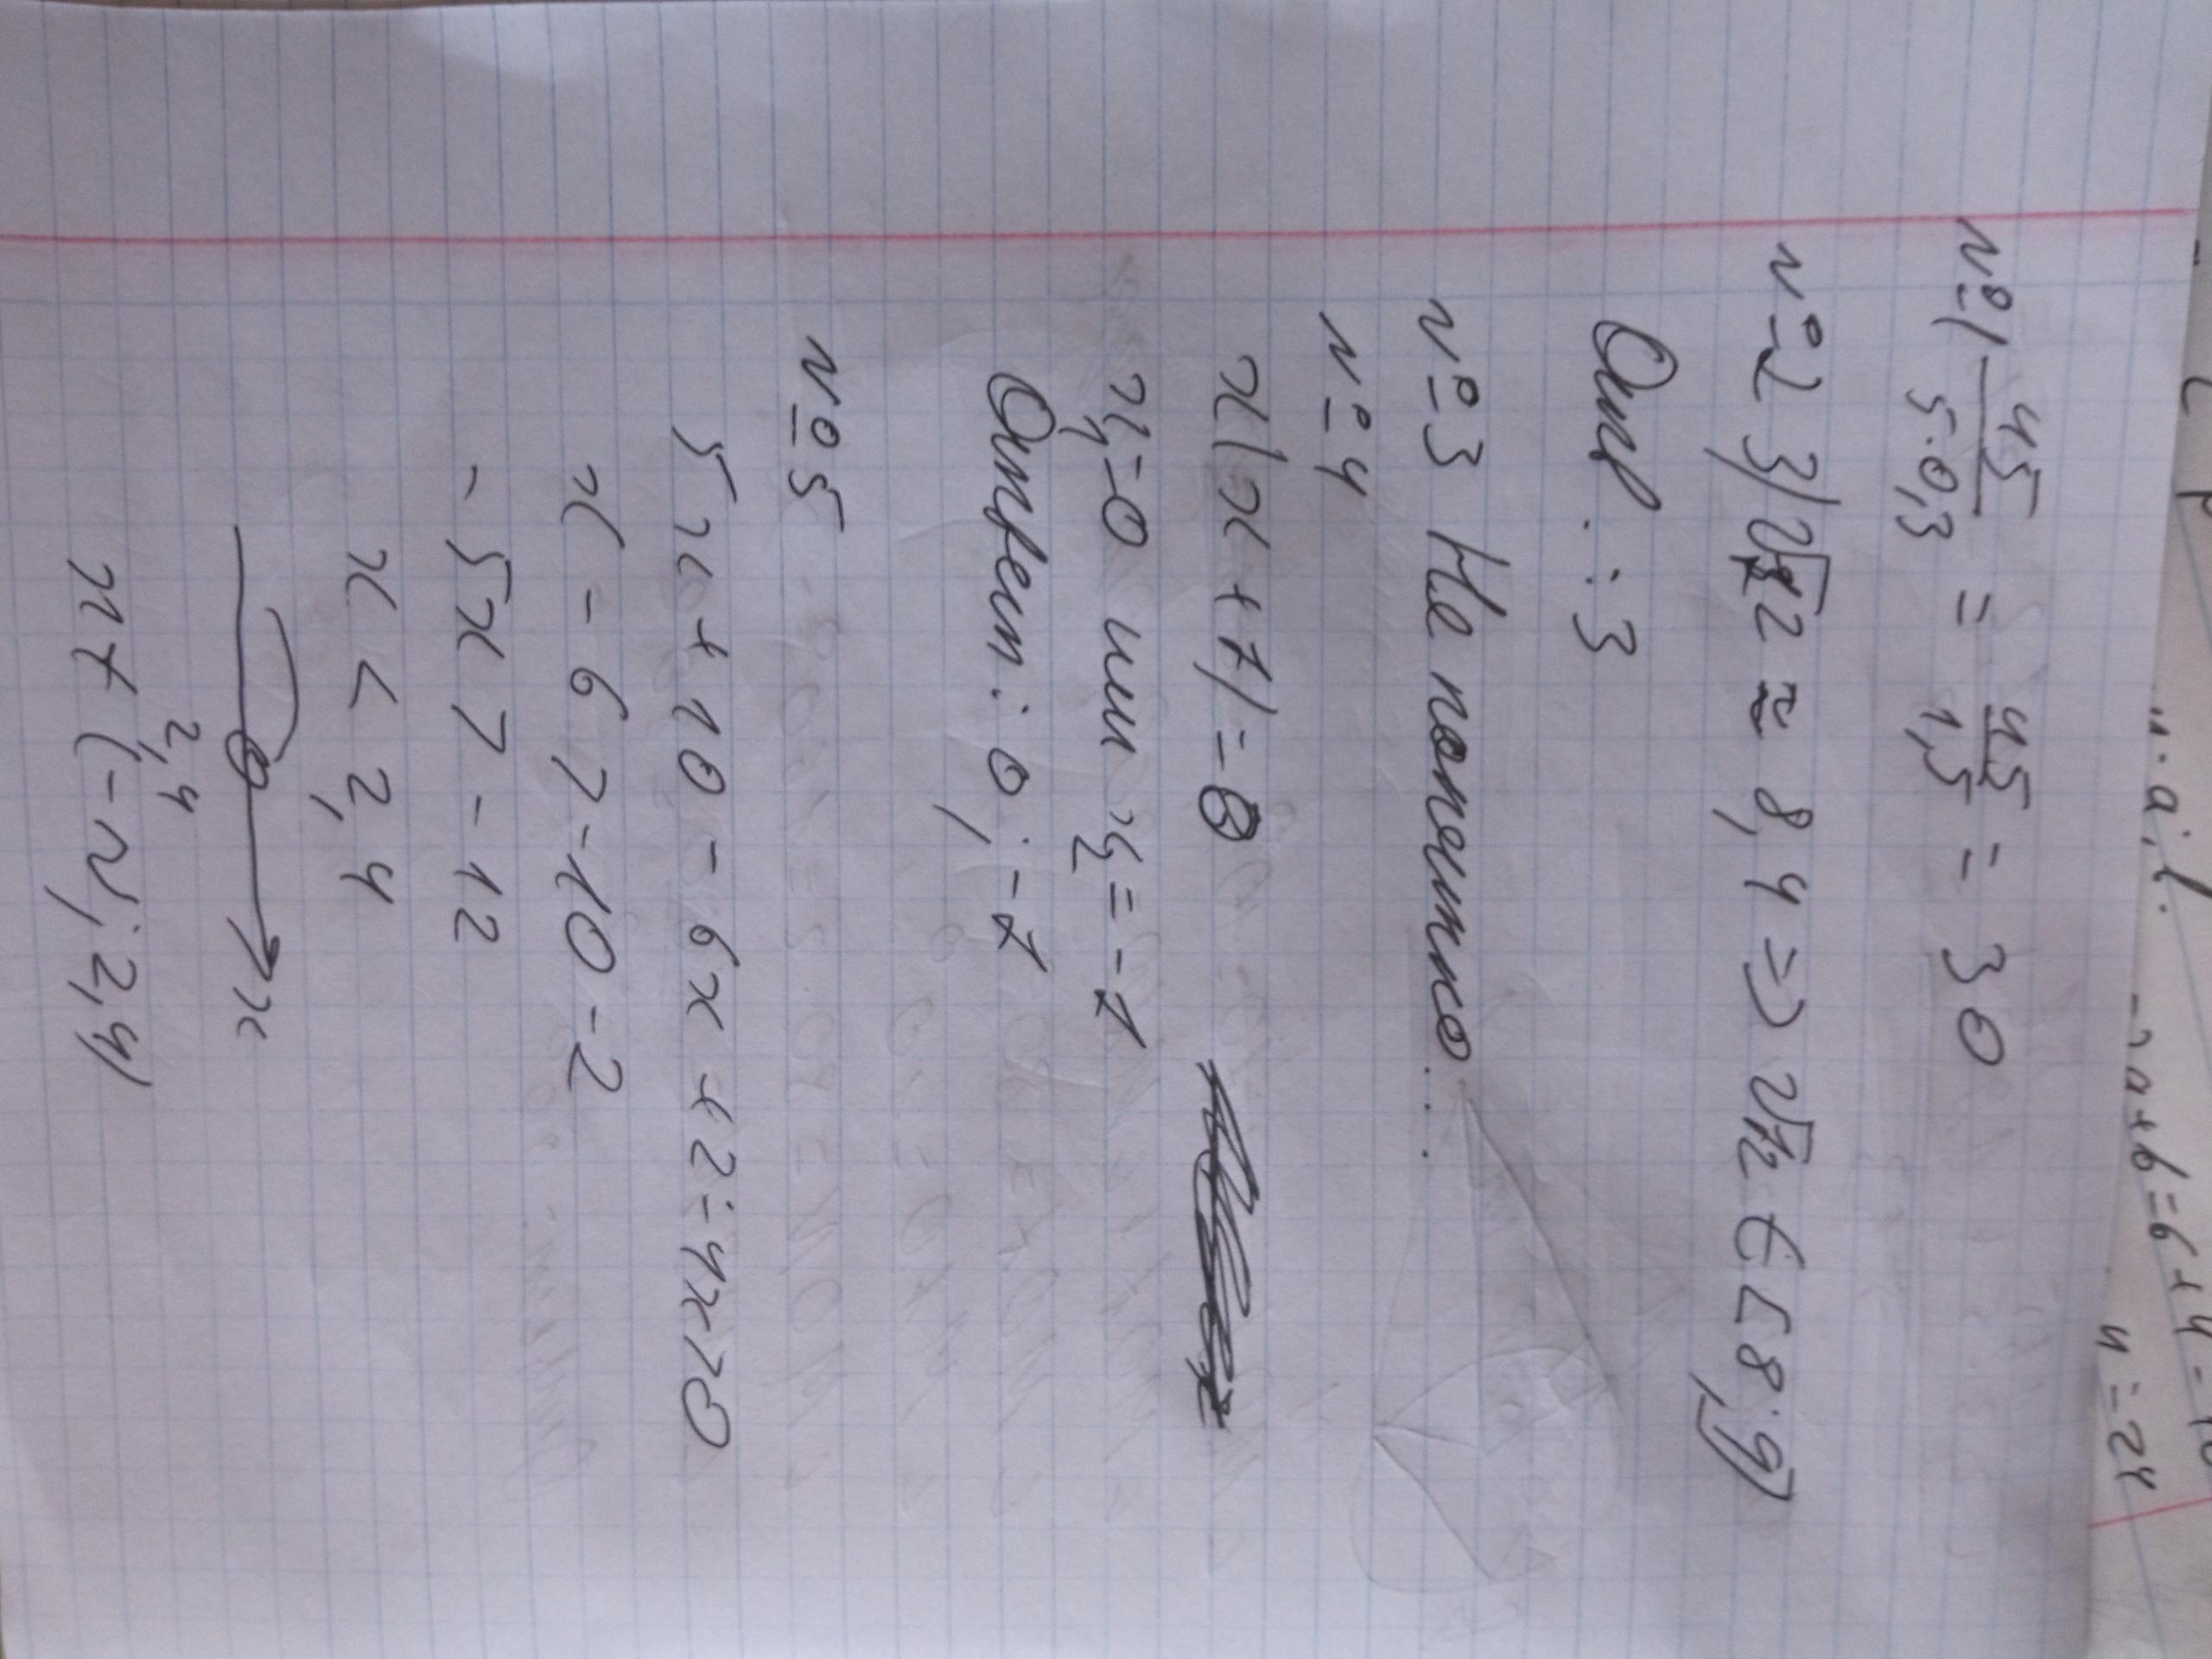 №1 45/(5·0,3) = 45/1,5 = 30
№2 3) √72 ≈ 8,4 => √72 ∈ [8;9]
Отв.: 3
№3 Не понятно...
№4
x(x+7)=0
x₁=0 или x₂=-7
Ответ: 0; -7
№5
5x+10-6x+2-4x>0
x-6>-10-2
-5x>-12
x<2,4
2,4 x
x∈(-∞; 2,4)
-2a+b=6+4=10
4=24